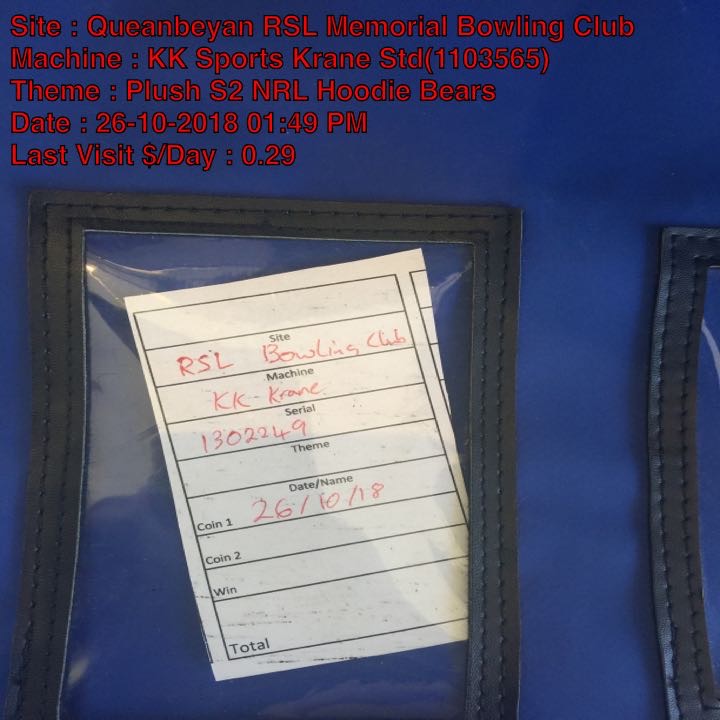 Site : Queanbeyan RSL Memorial Bowling Club
Machine : KK Sports Krane Std(1103565)
Theme : Plush S2 NRL Hoodie Bears
Date : 26-10-2018 01:49 PM
Last Visit $/Day : 0.29
Site
RSL Bowling Club
Machine
KK Krane
Serial
1302249
Theme
Date/Name
26/10/18
Coin 1
Coin 2
Win
Total